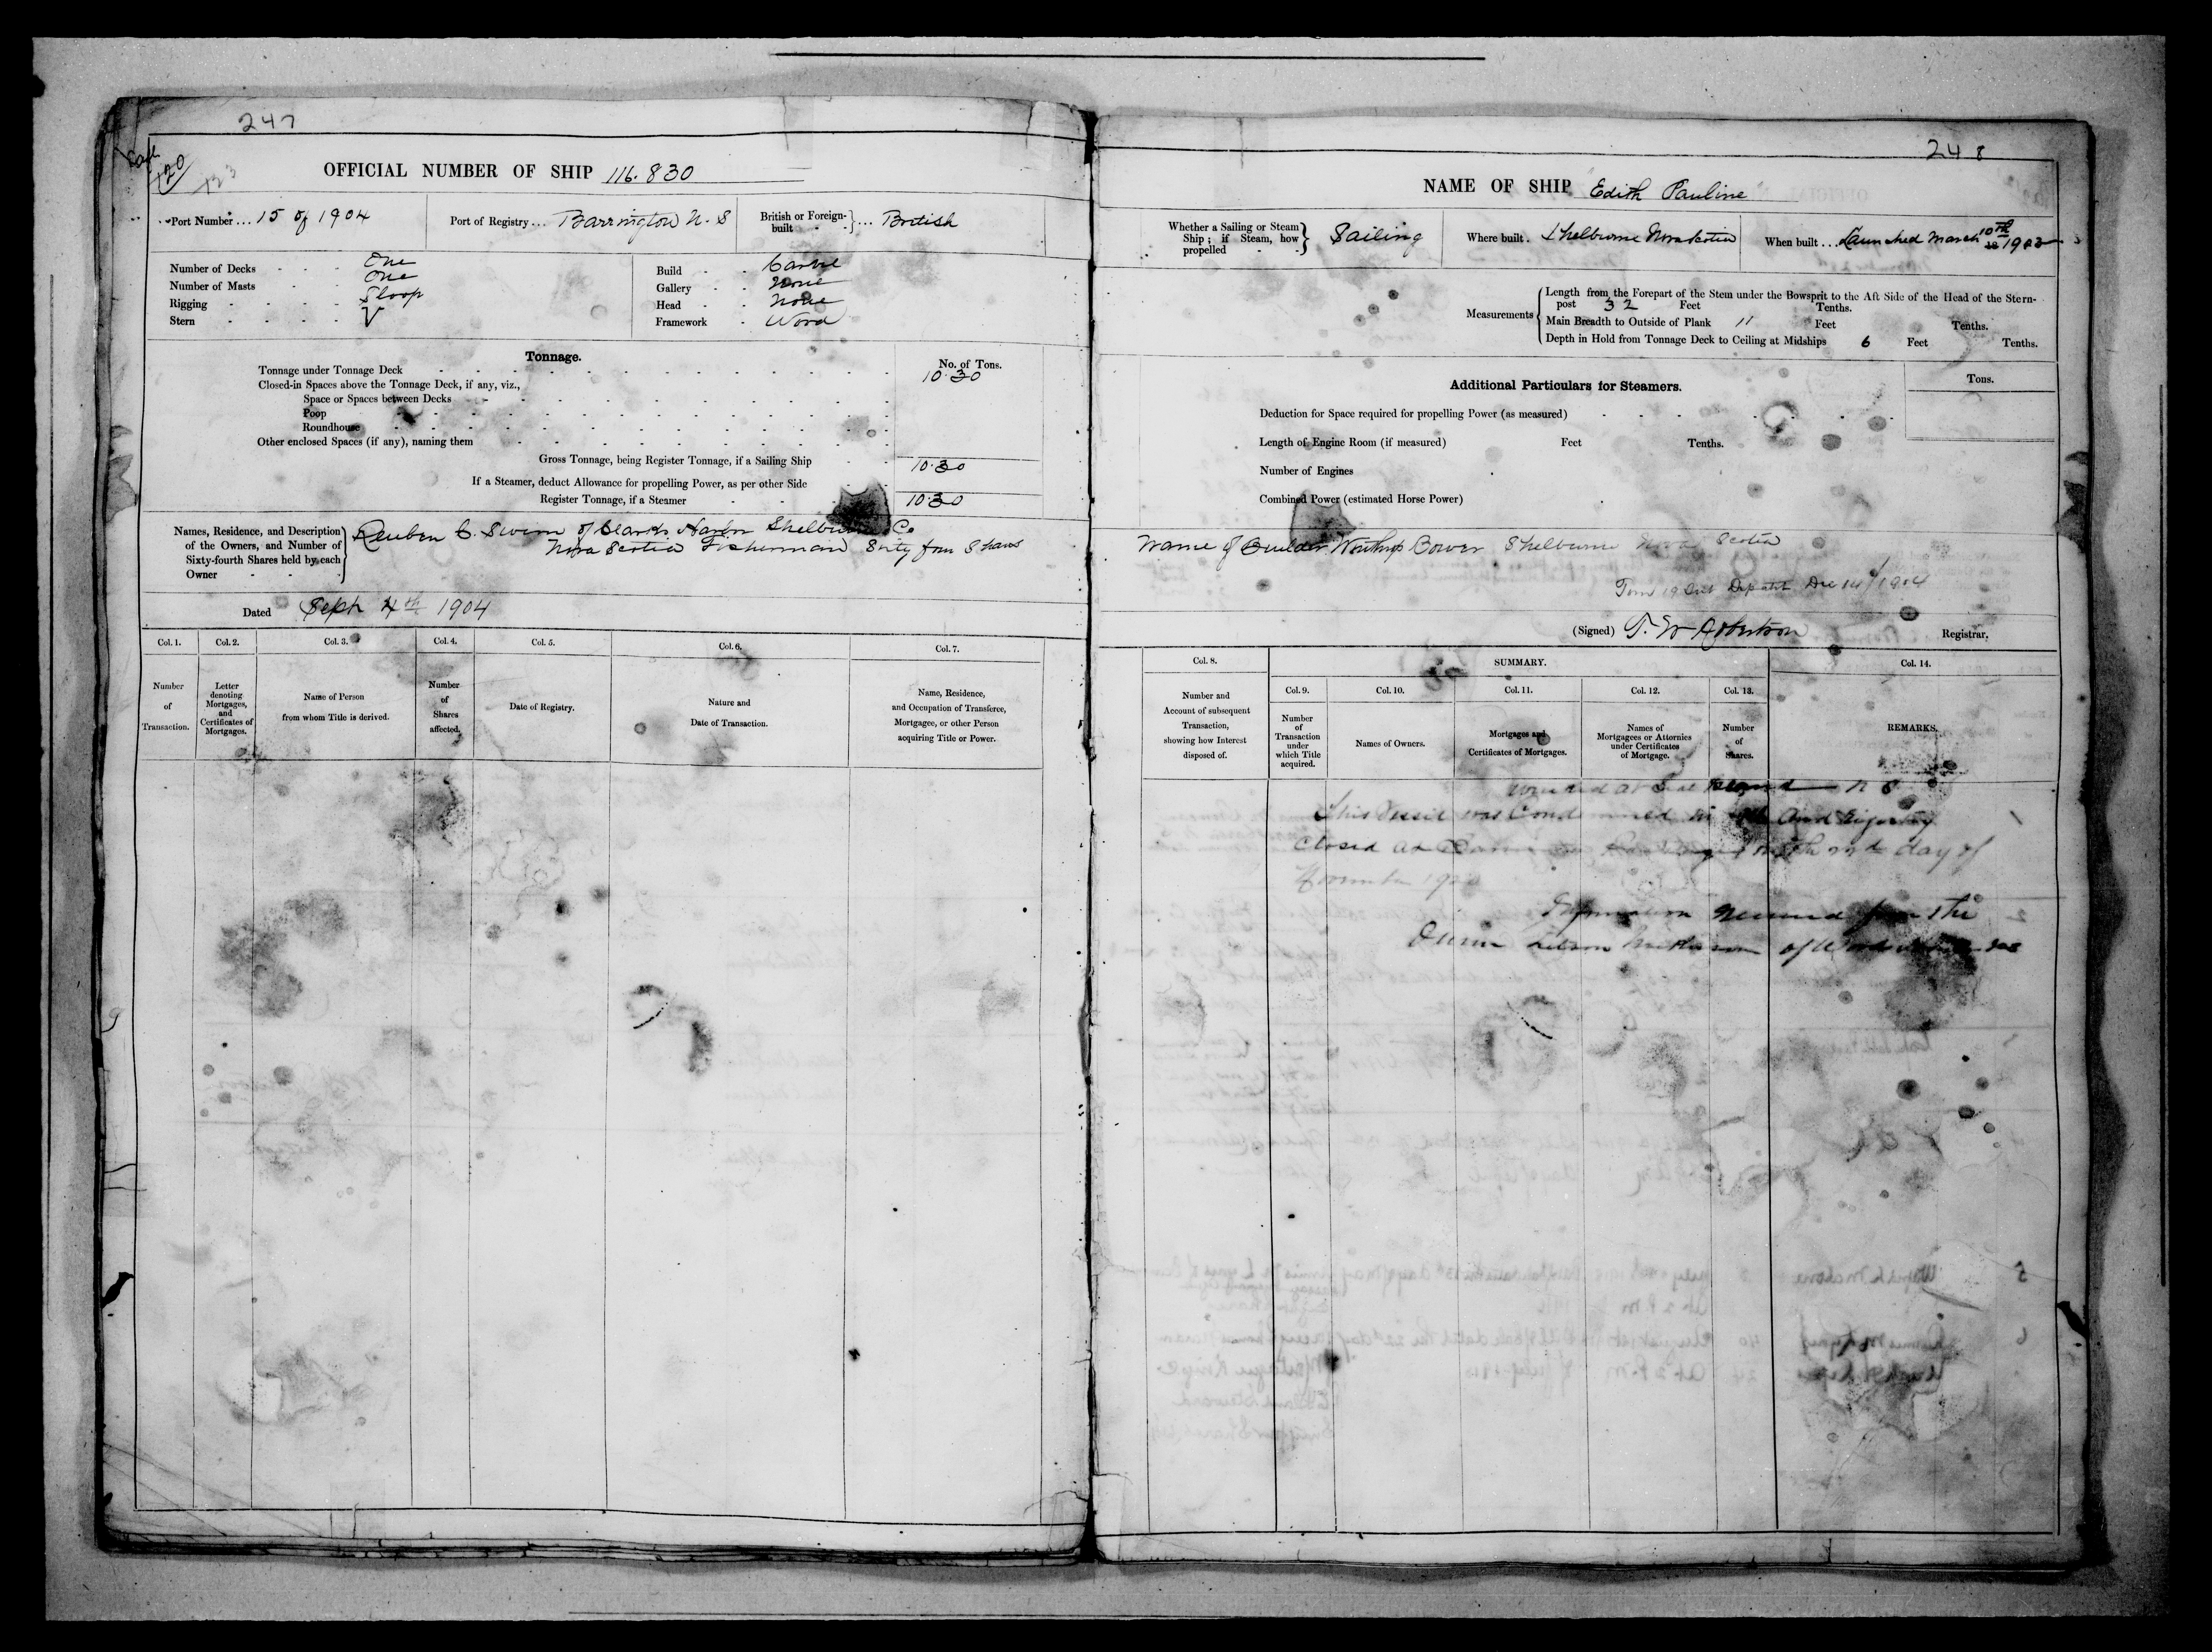 247
120
OFFICIAL NUMBER OF SHIP 116.830
Port Number ... 15 of 1904
Port of Registry ... Barrington N. S
British or Foreign-built } ... British
Number of Decks - - - One
Number of Masts - - - One
Rigging - - - - Sloop
Stern - - - - V
Build - - Carvel
Gallery - - None
Head - - None
Framework - Wood
Tonnage.
No. of Tons.
Tonnage under Tonnage Deck 10.30
Closed-in Spaces above the Tonnage Deck, if any, viz.,
Space or Spaces between Decks
Poop
Roundhouse
Other enclosed Spaces (if any), naming them
Gross Tonnage, being Register Tonnage, if a Sailing Ship 10.30
If a Steamer, deduct Allowance for propelling Power, as per other Side
Register Tonnage, if a Steamer 10.30
Names, Residence, and Description of the Owners, and Number of Sixty-fourth Shares held by each Owner
Reuben C. Swim of Clarks Harbor Shelburne Co
Nova Scotia Fisherman Sixty four Shares
Dated Sept 4th 1904
Col. 1. Col. 2. Col. 3. Col. 4. Col. 5. Col. 6. Col. 7.
Number of Transaction.
Letter denoting Mortgages, and Certificates of Mortgages.
Name of Person from whom Title is derived.
Number of Shares affected.
Date of Registry.
Nature and Date of Transaction.
Name, Residence, and Occupation of Transferee, Mortgagee, or other Person acquiring Title or Power.
248
NAME OF SHIP "Edith Pauline"
Whether a Sailing or Steam Ship; if Steam, how propelled } Sailing
Where built . Shelburne Nova Scotia
When built ... Launched March 10th
Measurements
Length from the Forepart of the Stem under the Bowsprit to the Aft Side of the Head of the Stern-
post 32 Feet Tenths.
Main Breadth to Outside of Plank 11 Feet Tenths.
Depth in Hold from Tonnage Deck to Ceiling at Midships 6 Feet Tenths.
Additional Particulars for Steamers.
Tons.
Deduction for Space required for propelling Power (as measured)
Length of Engine Room (if measured) Feet Tenths.
Number of Engines
Combined Power (estimated Horse Power)
Name of Builder Winthrop Bower Shelburne Nova Scotia
Dec 14/1904
(Signed) T. W Robertson Registrar.
Col. 8. SUMMARY. Col. 14.
Col. 9. Col. 10. Col. 11. Col. 12. Col. 13.
Number and Account of subsequent Transaction, showing how Interest disposed of.
Number of Transaction under which Title acquired.
Names of Owners.
Mortgages and Certificates of Mortgages.
Names of Mortgagees or Attornies under Certificates of Mortgage.
Number of Shares.
REMARKS.
at Seal Island N S
This Vessel was Condemned and Registry
closed at day of
November
Information received from the
of